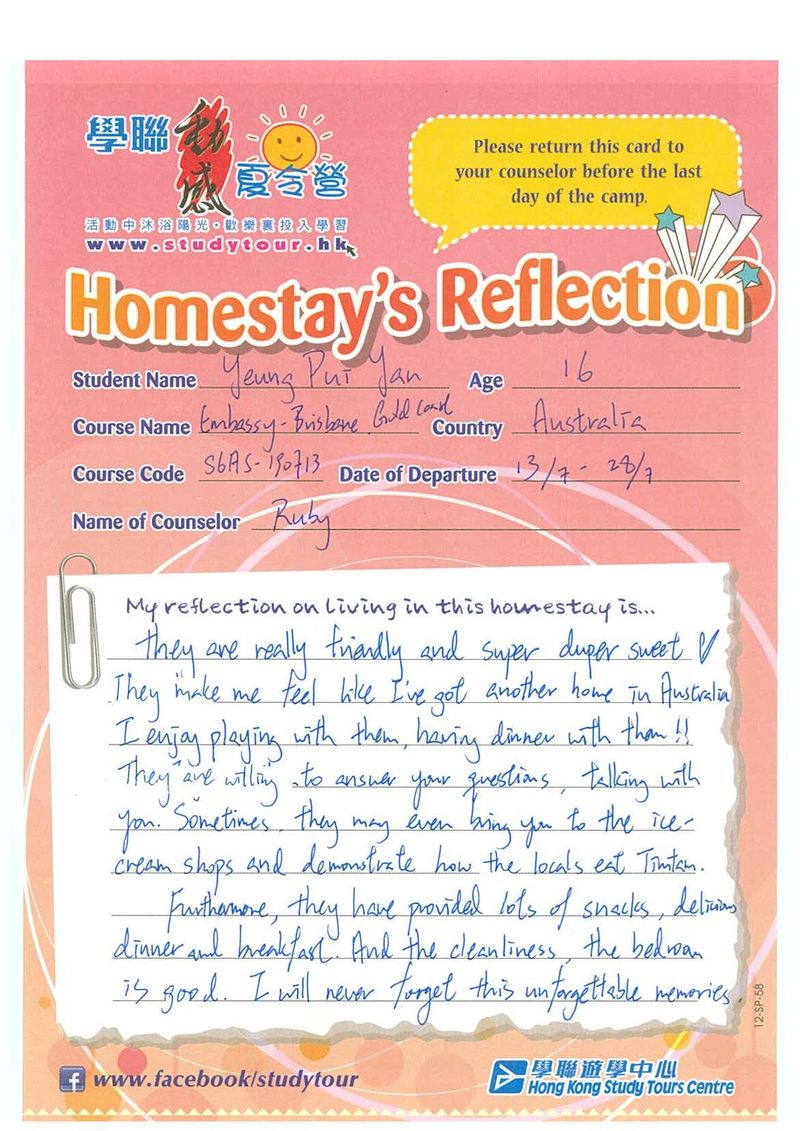 學聯 動感 夏令營
活動中沐浴陽光・歡樂裏投入學習
www.studytour.hk
Please return this card to
your counselor before the last
day of the camp.
Homestay's Reflection
Student Name Yeung Pui Yan Age 16
Course Name Embassy-Brisbane Gold Coast Country Australia
Course Code S6AS-190713 Date of Departure 13/7 - 28/7
Name of Counselor Ruby
My reflection on living in this homestay is...
They are really friendly and super duper sweet
They make me feel like I've got another home in Australia
I enjoy playing with them, having dinner with them!!
They are willing to answer your questions, talking with
you. Sometimes, they may even bring you to the ice-
cream shops and demonstrate how the locals eat Timtam.
Furthermore, they have provided lots of snacks, delicious
dinner and breakfast. And the cleanliness, the bedroom
is good. I will never forget this unforgettable memories
12-SP-58
f www.facebook/studytour
學聯遊學中心
Hong Kong Study Tours Centre